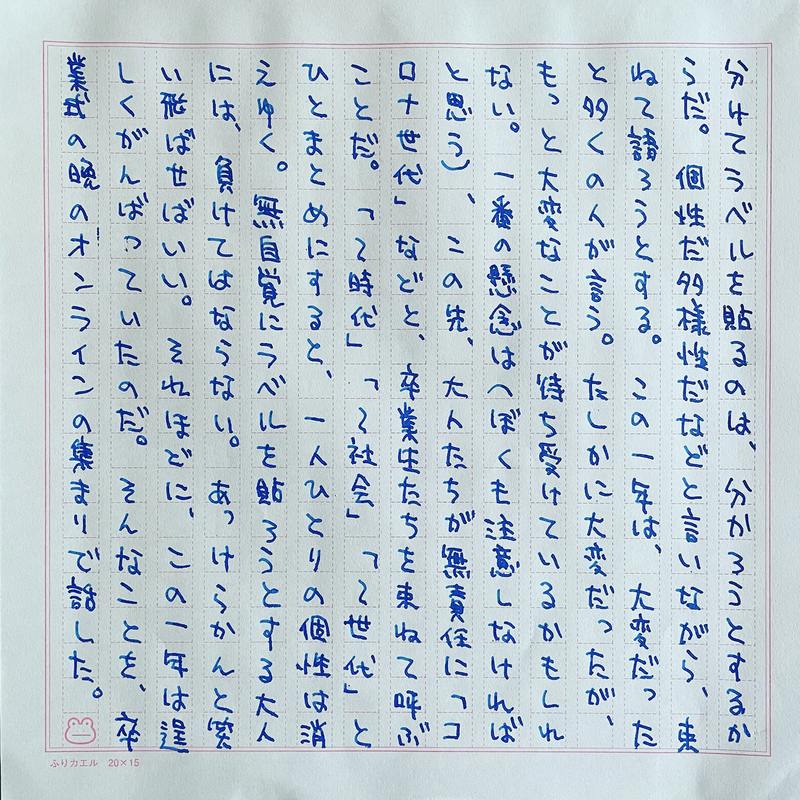 分けてラベルを貼るのは、分かろうとするか
らだ。個性だ多様性だなどと言いながら、束
ねて語ろうとする。この一年は、大変だった
と多くの人が言う。たしかに大変だったが、
もっと大変なことが待ち受けているかもしれ
ない。一番の懸念は(ぼくも注意しなければ
と思う)、この先、大人たちが無責任に「コ
ロナ世代」などと、卒業生たちを束ねて呼ぶ
ことだ。「〜時代」「〜社会」「〜世代」と
ひとまとめにすると、一人ひとりの個性は消
えゆく。無自覚にラベルを貼ろうとする大人
には、負けてはならない。あっけらかんと笑
い飛ばせばいい。それほどに、この一年は逞
しくがんばっていたのだ。そんなことを、卒
業式の晩のオンラインの集まりで話した。
ふりカエル 20×15